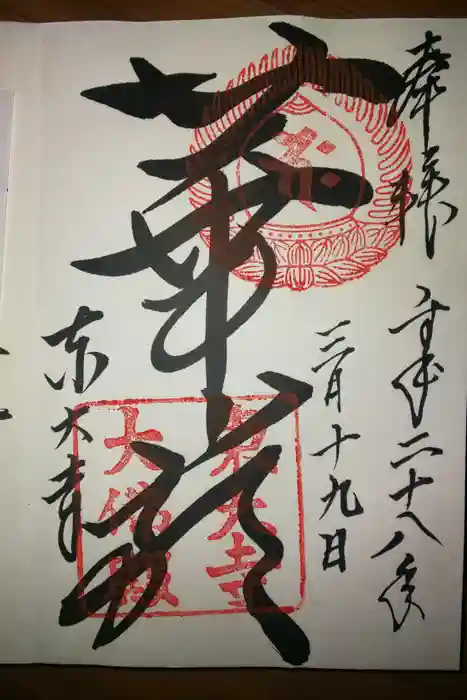 奉拝
平成二十八年
三月十九日
華厳
東大寺
東大寺
大佛殿